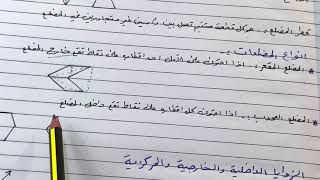 قطر المضلع : هو كل قطعة مستقيم تصل بين رأسين غير متجاورين في المضلع
أنواع المضلعات :
* المضلع المقعر : اذا احتوت على الأقل احد اقطاره على نقاط تقع خارج المضلع
* المضلع المحدب : اذا احتوت كل اقطاره على نقاط تقع داخل المضلع
الزوايا الداخلية والخارجية والمركزية